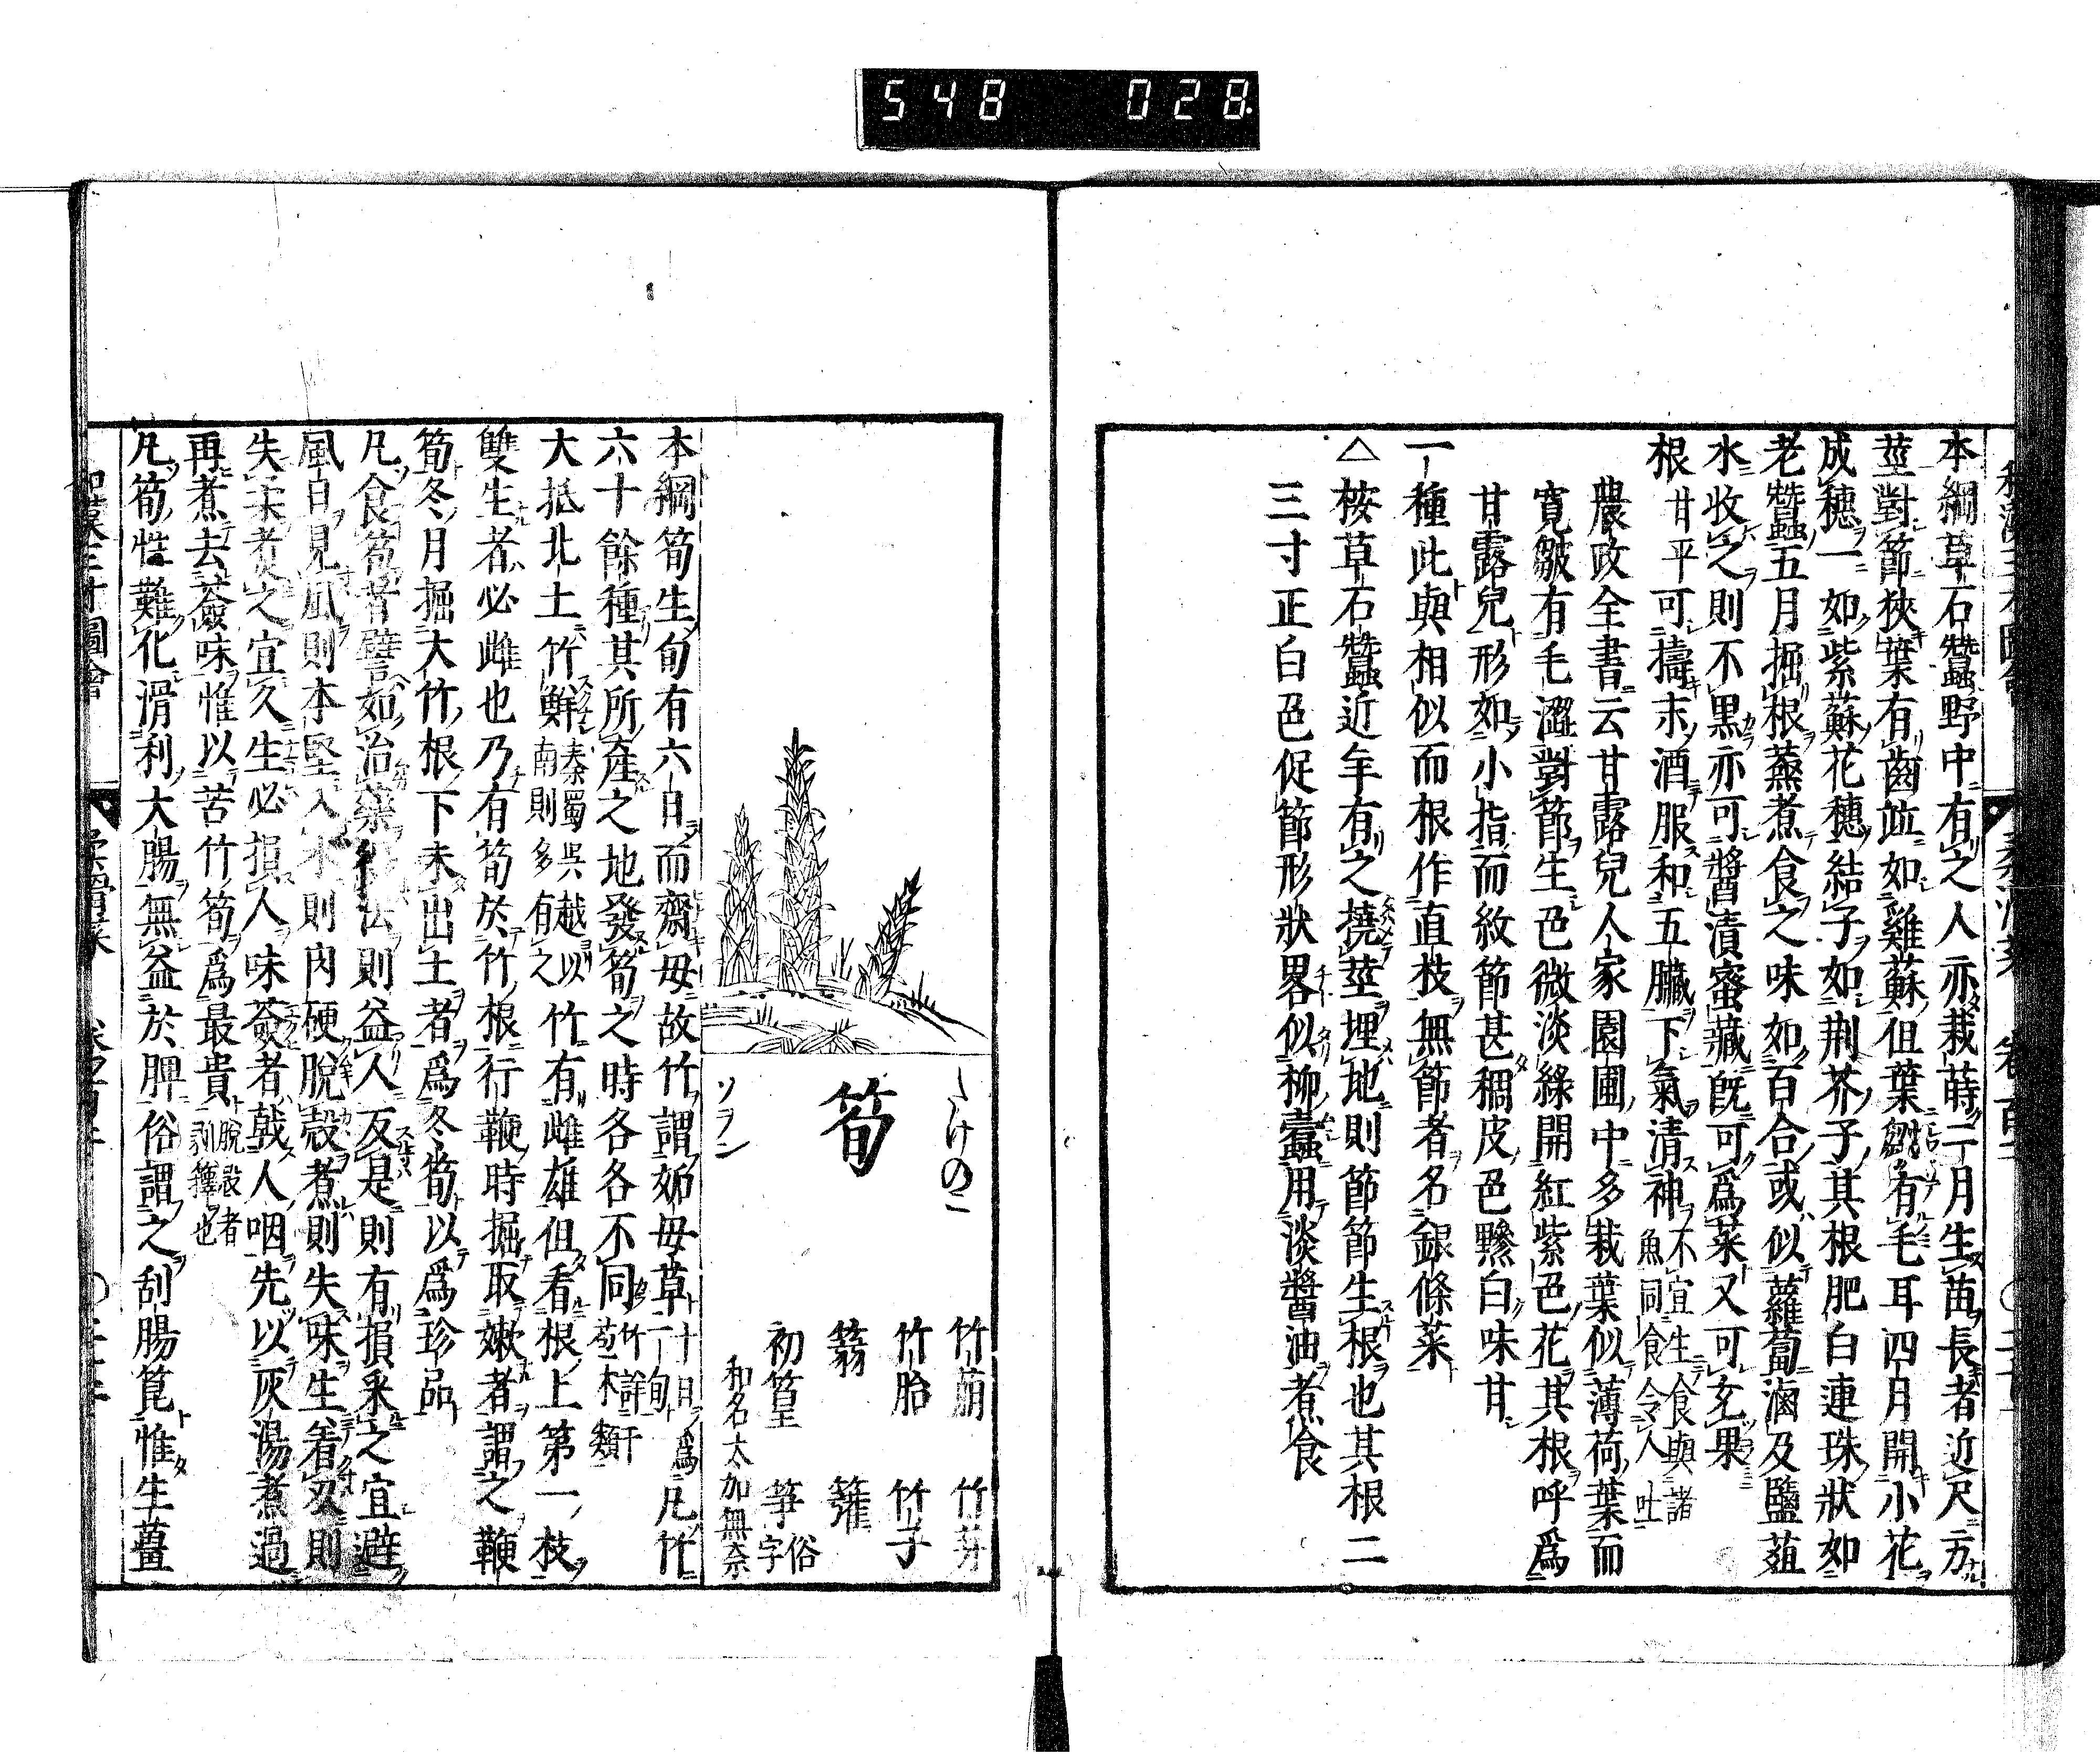 548 028
本綱草石蠶野中有之人亦栽蒔二月生苗長者近尺方
莖對節狹葉有齒竝如雞蘇但葉皺有毛耳四月開小花
成穗一如紫蘇花穗結子如荆芥子其根肥白連珠狀如
老蠶五月掘根蒸煮食之味如百合或似蘿蔔滷及鹽葅
水收之則不黒亦可醬漬蜜藏旣可爲菜又可充果
根 甘平可擣末酒服和五臟下氣清神 不宜生食與諸
魚同食令人吐
農政全書云甘露兒人家園圃中多栽葉似薄荷葉而
寛皺有毛澀對節生色微淡綠開紅紫色花其根呼爲
甘露兒形如小指而紋節甚稠皮色黲白味甘
一種此與相似而根作直枝無節者名銀條菜
△按草石蠶近年有之撓莖埋地則節節生根也其根二
三寸正白色促節形狀畧似柳蠧用淡醬油煮食
たけのこ
筍
ソヲン
竹萠 竹芽
竹胎 竹子
蒻 䉗
初篁 笋 俗字
和名太加無奈
本綱筍生旬有六日而齋母故竹謂妬母草 十日爲
一旬 凡竹
六十餘種其所產之地發筍之時各各不同 竹詳于
苞木類
大抵北土竹鮮 秦蜀吳越以
南則多有之 竹有雌雄但看根上第一枝
雙生者必雌也乃有筍於竹根行鞭時掘取嫩者謂之鞭
筍冬月掘大竹根下未出土者爲冬筍以爲珍品
凡食筍者譬如治藥 法則益人反是則有損采之宜避
風日見風則本堅入水則肉硬脫殼煮則失味生着刄則
失柔煮之宜久生必損人味薟者戟人咽先以灰湯煮過
再煮去薟味惟以苦竹筍爲最貴 脫殼者
剥籜也
凡筍性難化滑利大腸無益於脾俗謂之刮腸箆惟生薑